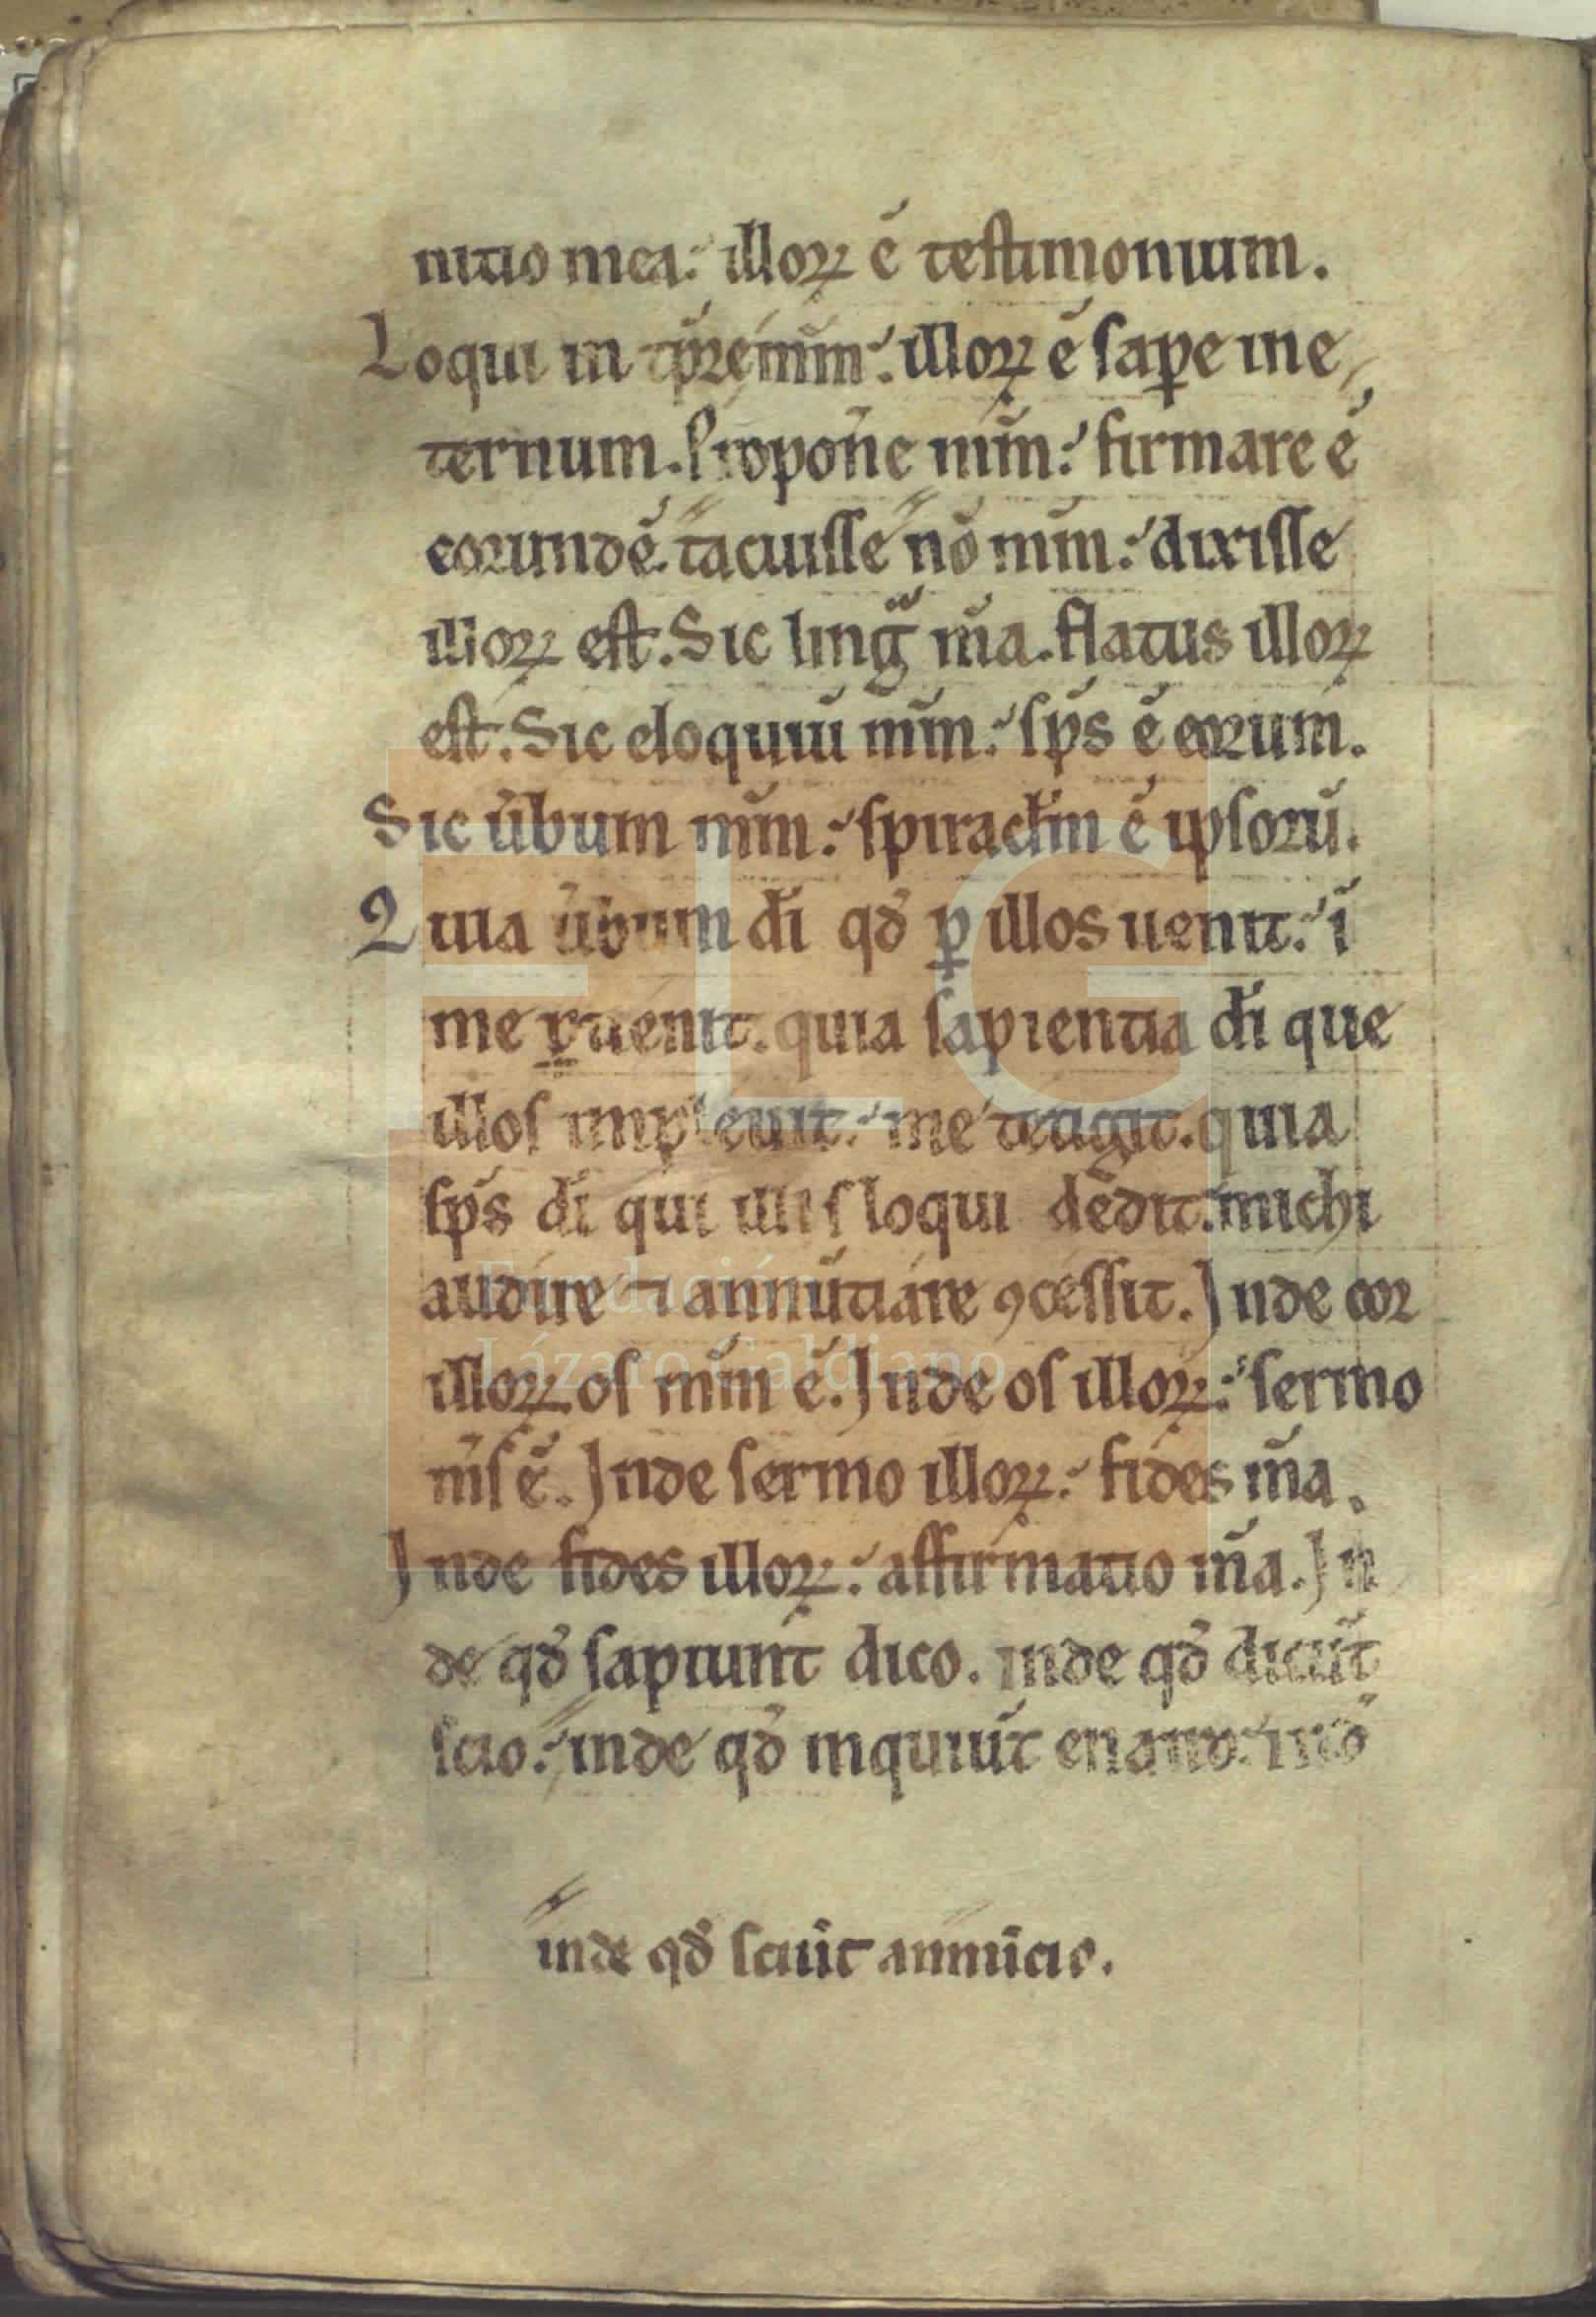 nitio mea: illoꝝ ē testimonium.
Loqui in tp̄re mm̄: illoꝝ ē saꝑe in e
ternum. Proponē mm̄: firmare ē
eorundē. tacuisse nō mm̄: dixisse
illoꝝ est. Sic linḡ mā. flatus illoꝝ
est. Sic eloquiū mm̄: sp̄s ē eorum.
Sic ūbum mm̄: spiraclm̄ ē ipsorū.
Quia ūbum dī qd̄ ꝑ illos uenit: ī
me uenit. quia sapientia dī que
illos impleuit: me tetigit. quia
sp̄s dī qui illis loqui dedit: michi
audire ⁊ annūtiare ꝯcessit. Inde cor
illoꝝ os mm̄ ē. Inde os illoꝝ: sermo
mīs ē. Inde sermo illoꝝ: fides mā.
Inde fides illoꝝ: affirmatio mā. In
de qd̄ sapiunt dico. inde qd̄ dicūt
scio: inde qd̄ inquiūt enarro:
inde qd̄ sciūt annūcio.
FLG
Fundación
Lázaro Galdiano